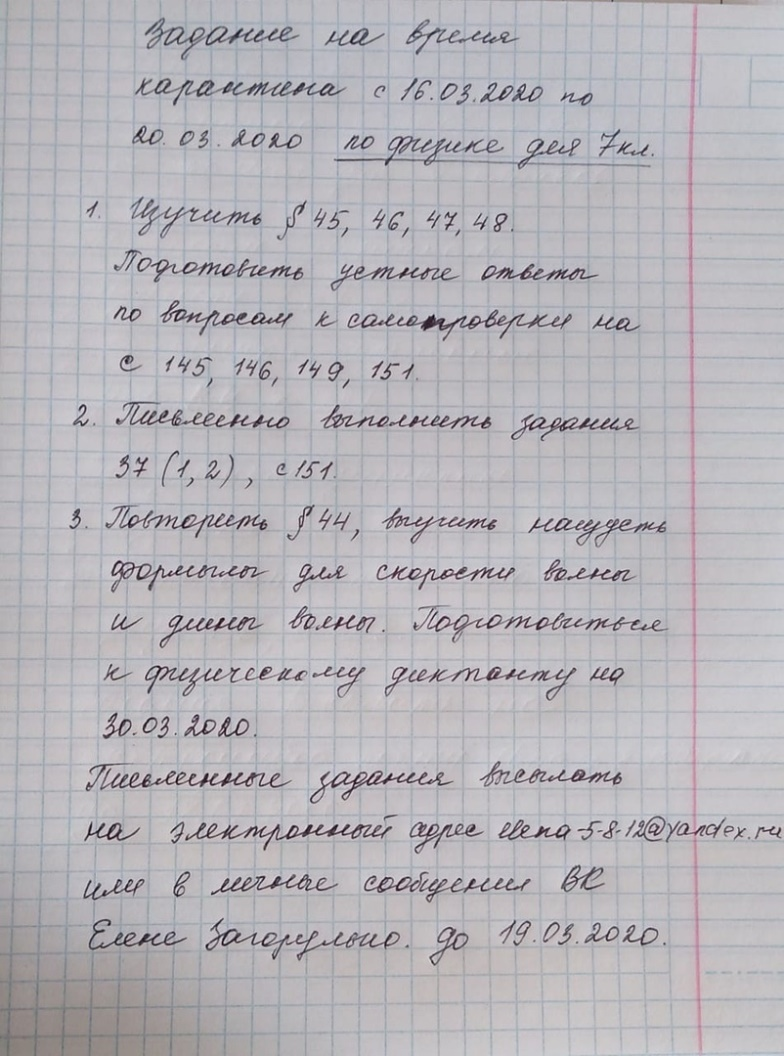 Задание на время
карантина с 16.03.2020 по
20.03.2020 по физике для 7 кл.
1. Изучить § 45, 46, 47, 48.
Подготовить устные ответы
по вопросам к самопроверки на
с 145, 146, 149, 151.
2. Письменно выполнить задания
37 (1, 2), с 151.
3. Повторить § 44, выучить наизусть
формылы для скорости волны
и длины волны. Подготовиться
к физическому диктанту на
30.03.2020.
Письменные задания высылать
на электронный адрес elena-5-8-12@yandex.ru
или в личные сообщения ВК
Елене Загорулько. до 19.03.2020.